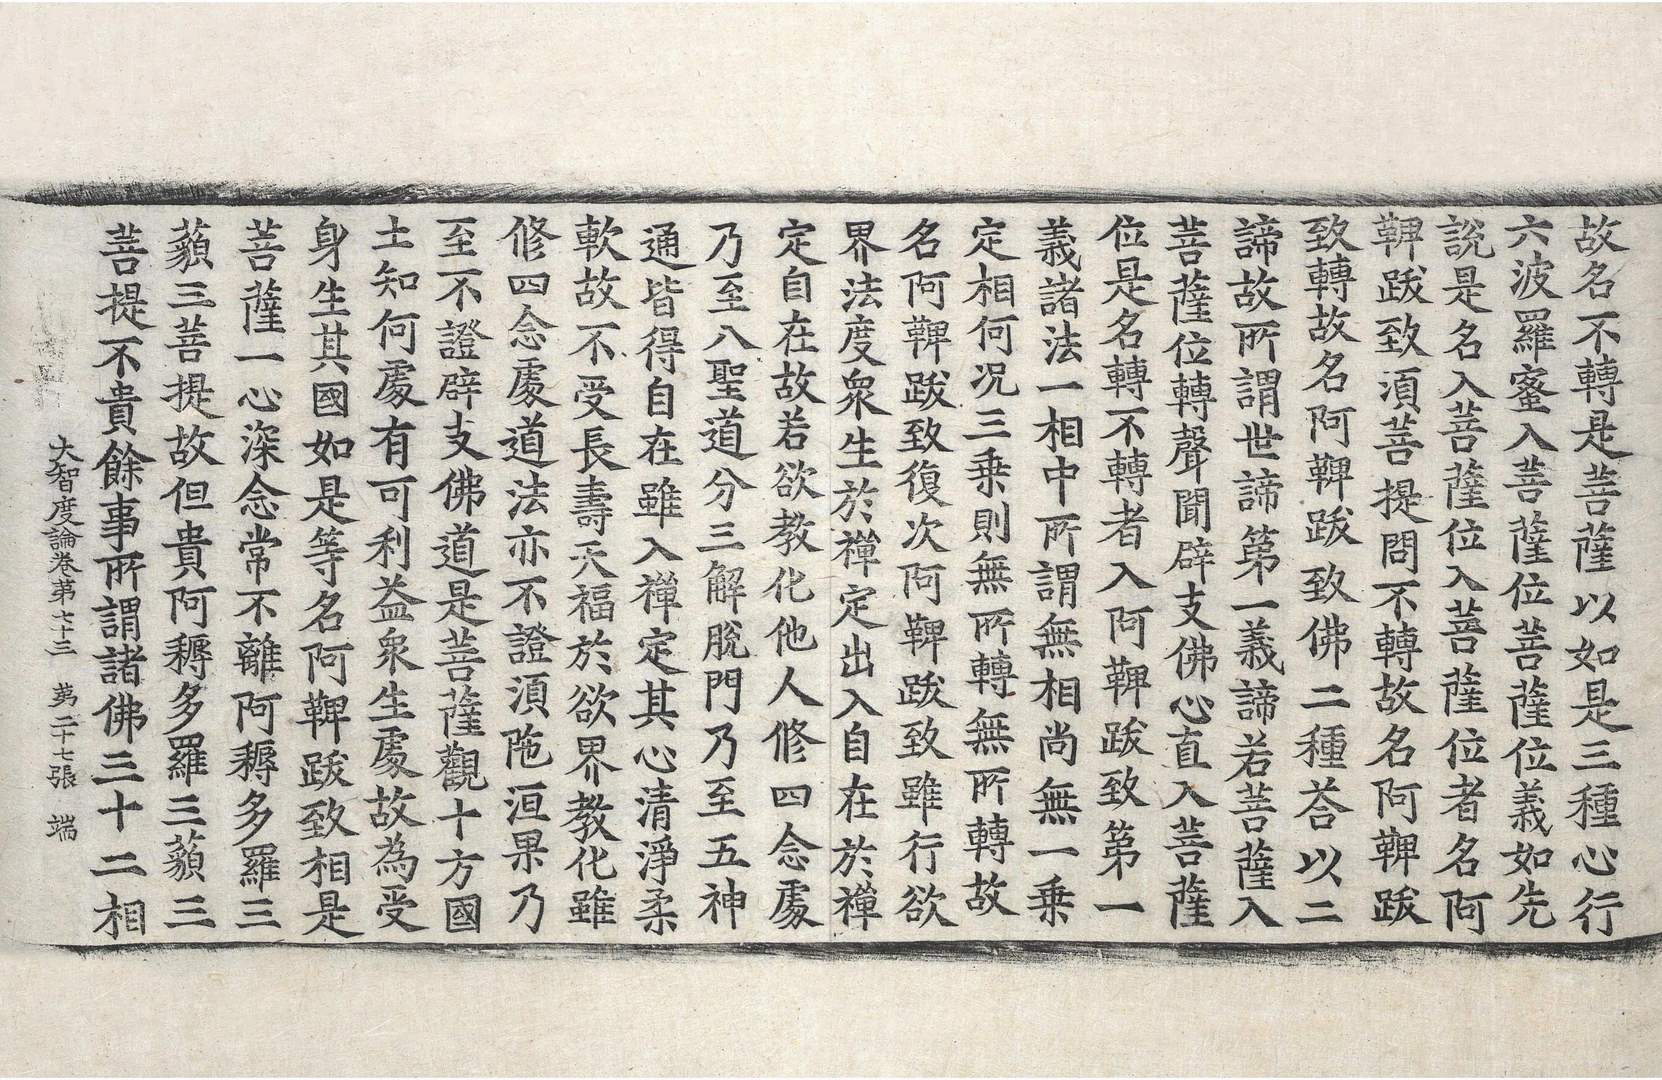 故名不轉是菩薩以如是三種心行
六波羅蜜入菩薩位菩薩位義如先
說是名入菩薩位入菩薩位者名阿
鞞跋致須菩提問不轉故名阿鞞跋
致轉故名阿鞞跋致佛二種荅以二
諦故所謂世諦第一義諦若菩薩入
菩薩位轉聲聞辟支佛心直入菩薩
位是名轉不轉者入阿鞞跋致第一
義諸法一相中所謂無相尚無一乗
定相何况三乗則無所轉無所轉故
名阿鞞跋致復次阿鞞跋致雖行欲
界法度衆生於禪定出入自在於禪
定自在故若欲教化他人修四念處
乃至八聖道分三解脫門乃至五神
通皆得自在雖入禪定其心清淨柔
軟故不受長壽天福於欲界教化雖
修四念處道法亦不證須陁洹果乃
至不證辟支佛道是菩薩觀十方國
土知何處有可利益衆生處故為受
身生其國如是等名阿鞞跋致相是
菩薩一心深念常不離阿耨多羅三
藐三菩提故但貴阿耨多羅三藐三
菩提不貴餘事所謂諸佛三十二相
大智度論卷第七十三 第二十七張 端